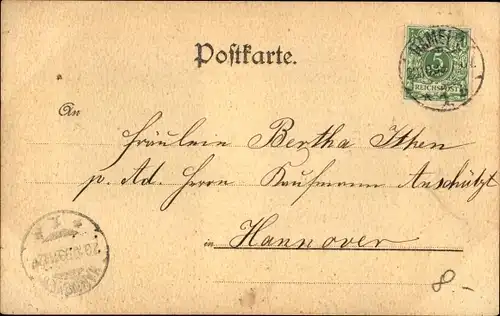 Postkarte.
HAMELN
5
REICHSPOST
1.
An
Fräulein Bertha Ithen
p. Ad. Herrn Kaufmann Anschützt
in Hannover
8.-